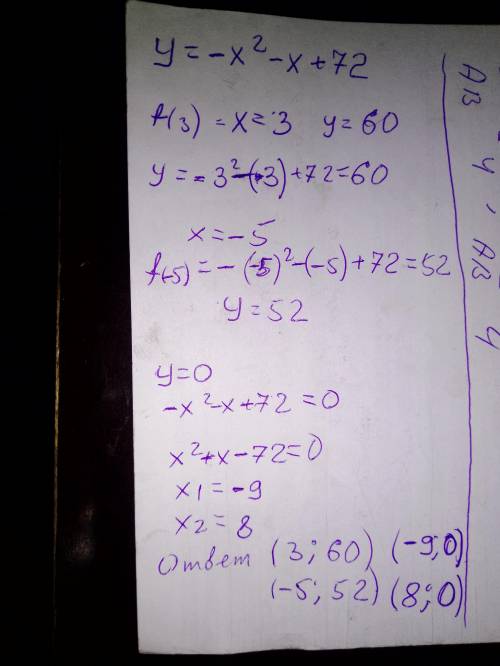 y = -x² - x + 72
f(3) = x = 3 y = 60
y = - 3² - (3) + 72 = 60
x = -5
f(-5) = - (-5)² - (-5) + 72 = 52
y = 52
y = 0
-x² - x + 72 = 0
x² + x - 72 = 0
x1 = -9
x2 = 8
Ответ (3; 60) (-9; 0)
(-5; 52) (8; 0)
AB
y
AB
y